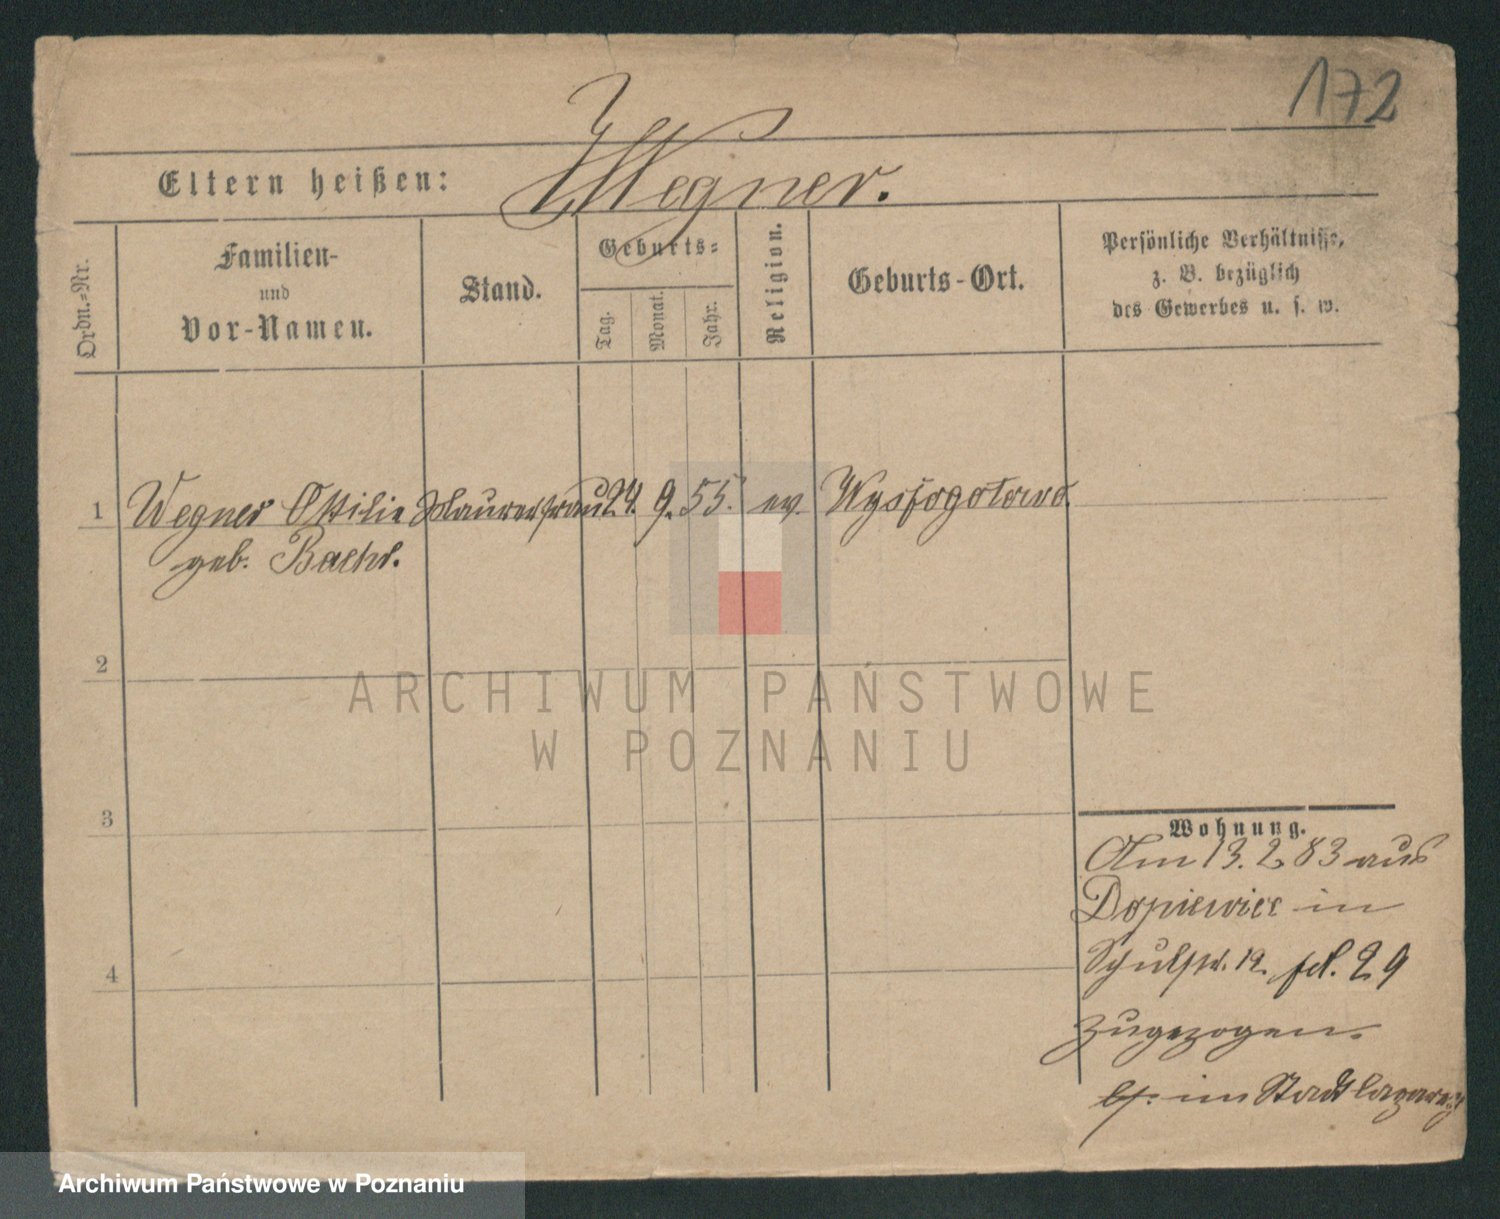 172
Eltern heißen: Wegner.
Ordn.=Nr.
Familien-
und
Vor-Namen.
Stand.
Geburts=
Tag.
Monat.
Jahr.
Religion.
Geburts-Ort.
Persönliche Verhältnisse,
z. B. bezüglich
des Gewerbes u. s. w.
1 Wegner Ottilie Maurerfrau 24. 9. 55. ev. Wyssogotowo.
geb. Baehr.
2
3
4
Wohnung.
Am 13. 2 83 aus
Dopiewiec in
Schulstr. 12. 29
zugezogen.
im Stadtlazareth
ARCHIWUM PAŃSTWOWE
W POZNANIU
Archiwum Państwowe w Poznaniu